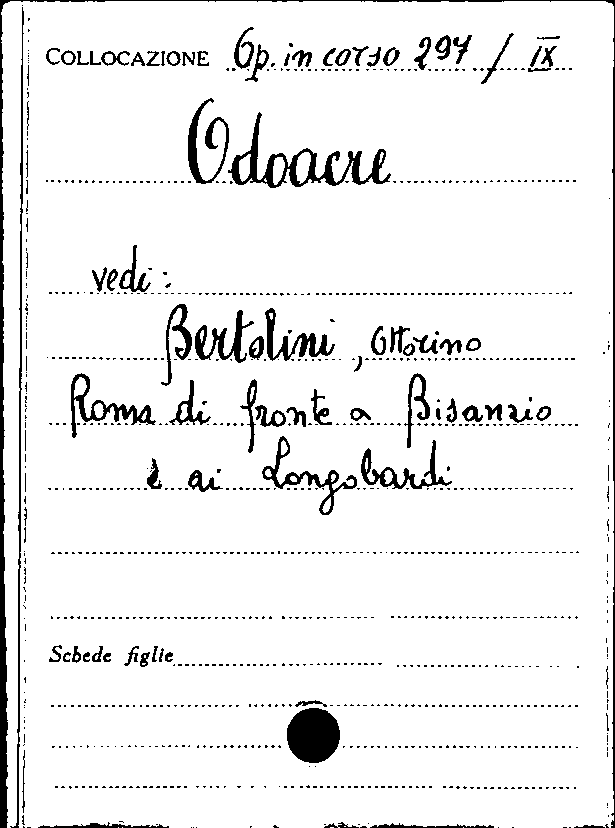 COLLOCAZIONE Op. in corso 297 / IX
Odoacre
vedi:
Bertolini, Ottorino
Roma di fronte a Bisanzio
e ai Longobardi
Schede figlie